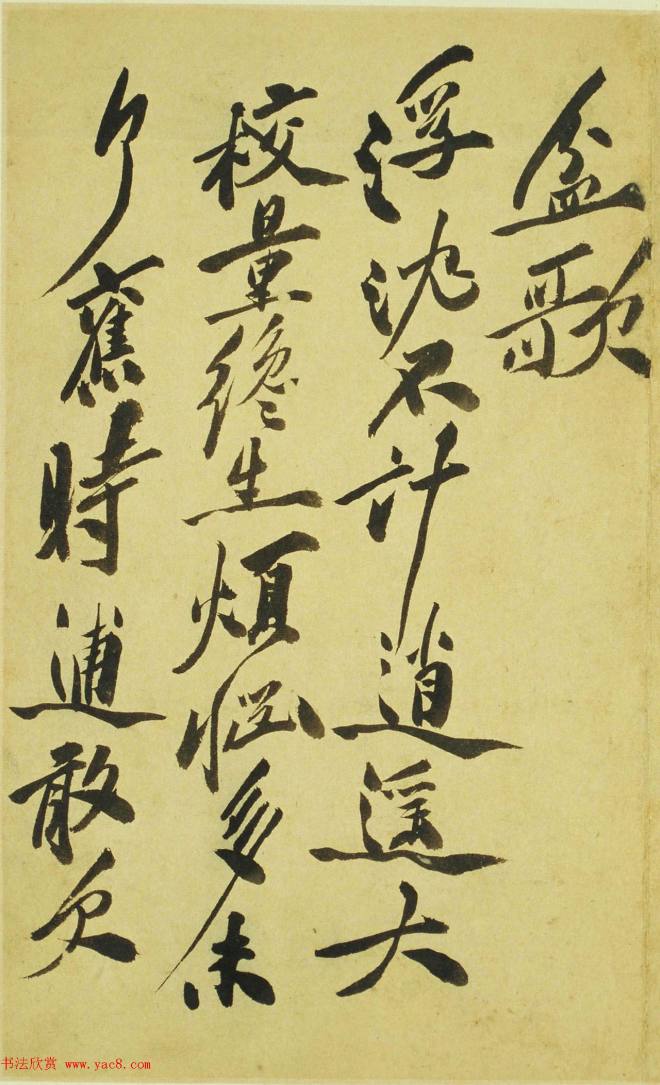 盆歌
浮沈不計逍遥大
校量纔生煩惱多未
舊時逋敢欠
书法欣赏 www.yac8.com